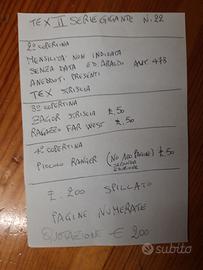 TEX II SERIE GIGANTE N. 22
2° COPERTINA
MENSILITÀ NON INDICATA
SENZA DATA ED. ARALDO AUT 473
ANEDDOTI PRESENTI
TEX STRISCIA
3° COPERTINA
ZAGOR STRISCIA £. 50
RAGAZZO FAR WEST £. 50
4° COPERTINA
PICCOLO RANGER (NO 100 PAGINE) £. 50
SECONDA
EDIZIONE
£. 200 SPILLATO
PAGINE NUMERATE
QUOTAZIONE € 200
subito